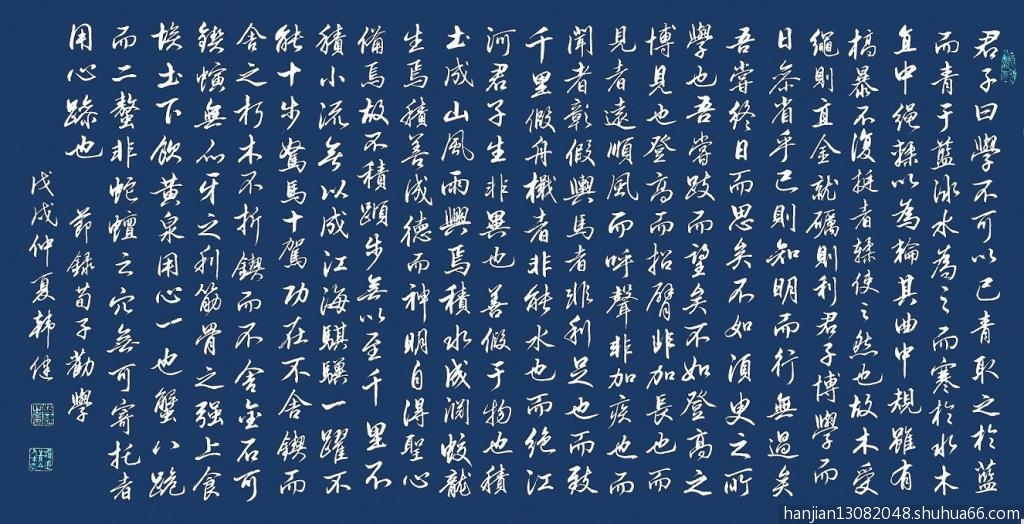 君子曰學不可以已青取之於藍
而青于藍冰水為之而寒於水木
直中绳輮以為輪其曲中規雖有
槁暴不復挺者輮使之然也故木受
繩則直金就礪則利君子博學而
日參省乎己則知明而行無過矣
吾嘗終日而思矣不如須臾之所
學也吾嘗跂而望矣不如登高之
博見也登高而招臂非加長也而
見者遠順風而呼聲非加疾也而
聞者彰假輿馬者非利足也而致
千里假舟檝者非能水也而絕江
河君子生非異也善假于物也積
土成山風雨興焉積水成淵蛟龍
生焉積善成德而神明自得聖心
備焉故不積蹞步無以至千里不
積小流無以成江海騏驥一躍不
能十步駑馬十駕功在不舍鍥而
舍之朽木不折鍥而不舍金石可
鏤螾無爪牙之利筋骨之强上食
埃土下飲黄泉用心一也蟹八跪
而二螯非蛇蟺之穴無可寄托者
用心躁也 節録荀子勸學
戊戌仲夏韩健
hanjian13082048.shuhua66.com